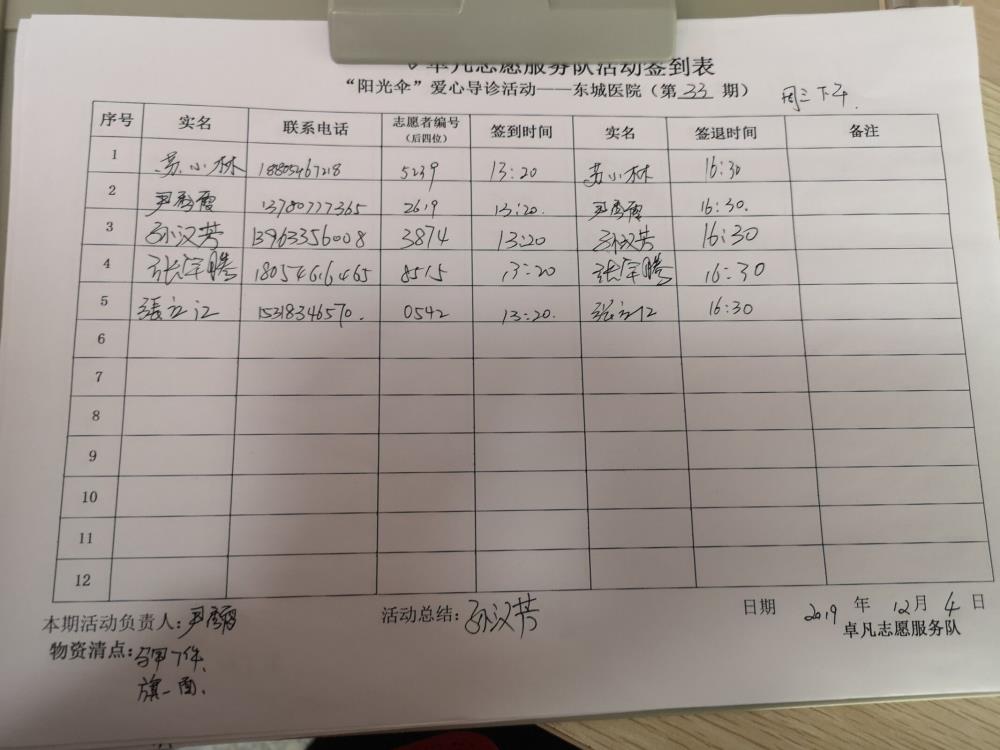 卓凡志愿服务队活动签到表
“阳光伞”爱心导诊活动——东城医院（第 33 期） 周三下午.
序号 实名 联系电话 志愿者编号（后四位） 签到时间 实名 签退时间 备注
1 苏小林 18805467218 5239 13:20 苏小林 16:30
2 尹秀霞 13780777365 2619 13:20. 尹秀霞 16:30.
3 孙汉芳 13963356008 3874 13:20 孙汉芳 16:30
4 张军腾 18054616465 8515 13:20 张军腾 16:30
5 張立江 15318346570. 0542 13:20. 張立江 16:30
6
7
8
9
10
11
12
本期活动负责人: 尹秀霞 活动总结: 孙汉芳 日期 2019 年 12月 4 日
物资清点: 马甲7件. 卓凡志愿服务队
旗一面.